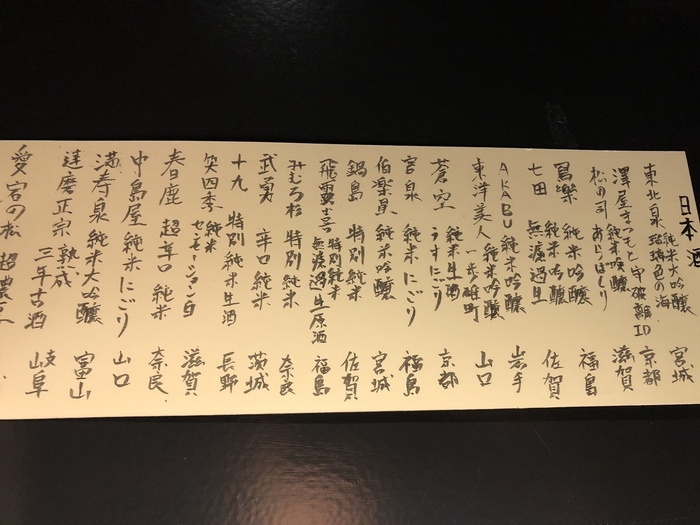 日本酒
東北泉 純米大吟醸 瑠璃色の海 宮城
澤屋まつもと 守破離ID 京都
松の司 純米吟醸 あらばしり 滋賀
寫樂 純米吟醸 福島
七田 純米吟醸 無濾過生 佐賀
AKABU 純米吟醸 岩手
東洋美人 純米吟醸 一歩 雄町 山口
蒼空 純米生酒 うすにごり 京都
宮泉 純米にごり 福島
伯楽星 純米吟醸 宮城
鍋島 特別純米 佐賀
飛露喜 特別純米 無濾過生原酒 福島
みむろ杉 特別純米 奈良
武勇 辛口純米 茨城
十九 特別純米生酒 長野
笑四季 純米 センセーション白 滋賀
春鹿 超辛口 純米 奈良
中島屋 純米にごり 山口
満寿泉 純米大吟醸 富山
達磨正宗 熟成 三年古酒 岐阜
愛宕の松 超濃